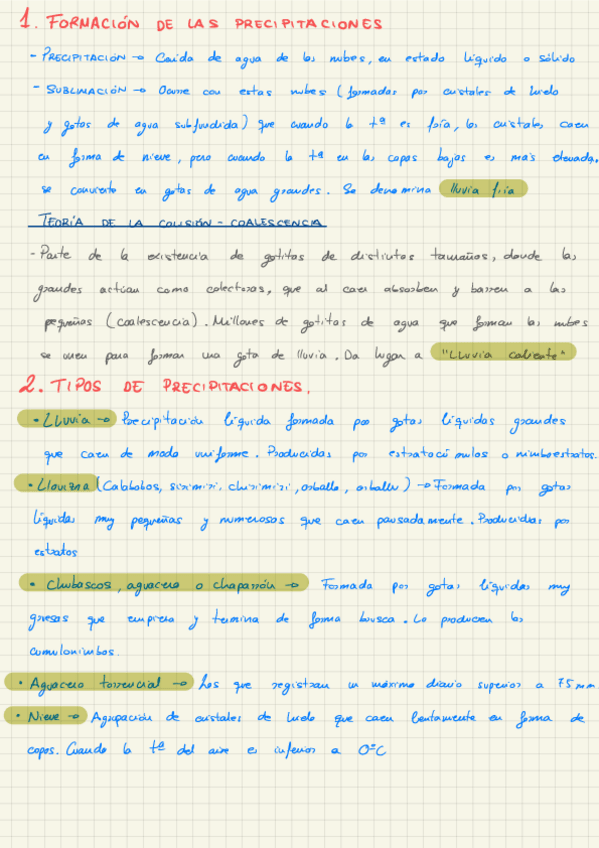 1. FORMACIÓN DE LAS PRECIPITACIONES
- PRECIPITACIÓN → Caida de agua de las nubes, en estado líquido o sólido
- SUBLIMACIÓN → Ocurre con estas nubes (formadas por cristales de hielo
y gotas de agua subfundida) que cuando la tª es fría, los cristales caen
en forma de nieve, pero cuando la tª en las capas bajas es más elevada,
se convierte en gotas de agua grandes. Se denomina lluvia fría
TEORÍA DE LA COLISIÓN - COALESCENCIA
- Parte de la existencia de gotitas de distintos tamaños, donde las
grandes actúan como colectoras, que al caer absorben y barren a las
pequeñas (coalescencia). Millones de gotitas de agua que forman las nubes
se unen para formar una gota de lluvia. Da lugar a "Lluvia caliente"
2. TIPOS DE PRECIPITACIONES.
• Lluvia → Precipitación líquida formada por gotas líquidas grandes
que caen de modo uniforme. Producidas por estratocúmulos o nimboestratos.
• Llovizna (Calabobos, sirimiri, chirimiri, orballo, orballu) → Formada por gotas
líquidas muy pequeñas y numerosas que caen pausadamente. Producidas por
estratos
• Chubascos, aguacero o chaparrón → Formada por gotas líquidas muy
gruesas que empieza y termina de forma brusca. Lo producen los
cumulonimbos.
• Aguacero torrencial → Los que registran un máximo diario superior a 75 mm
• Nieve → Agrupación de cristales de hielo que caen lentamente en forma de
copos. Cuando la tª del aire es inferior a 0ºC